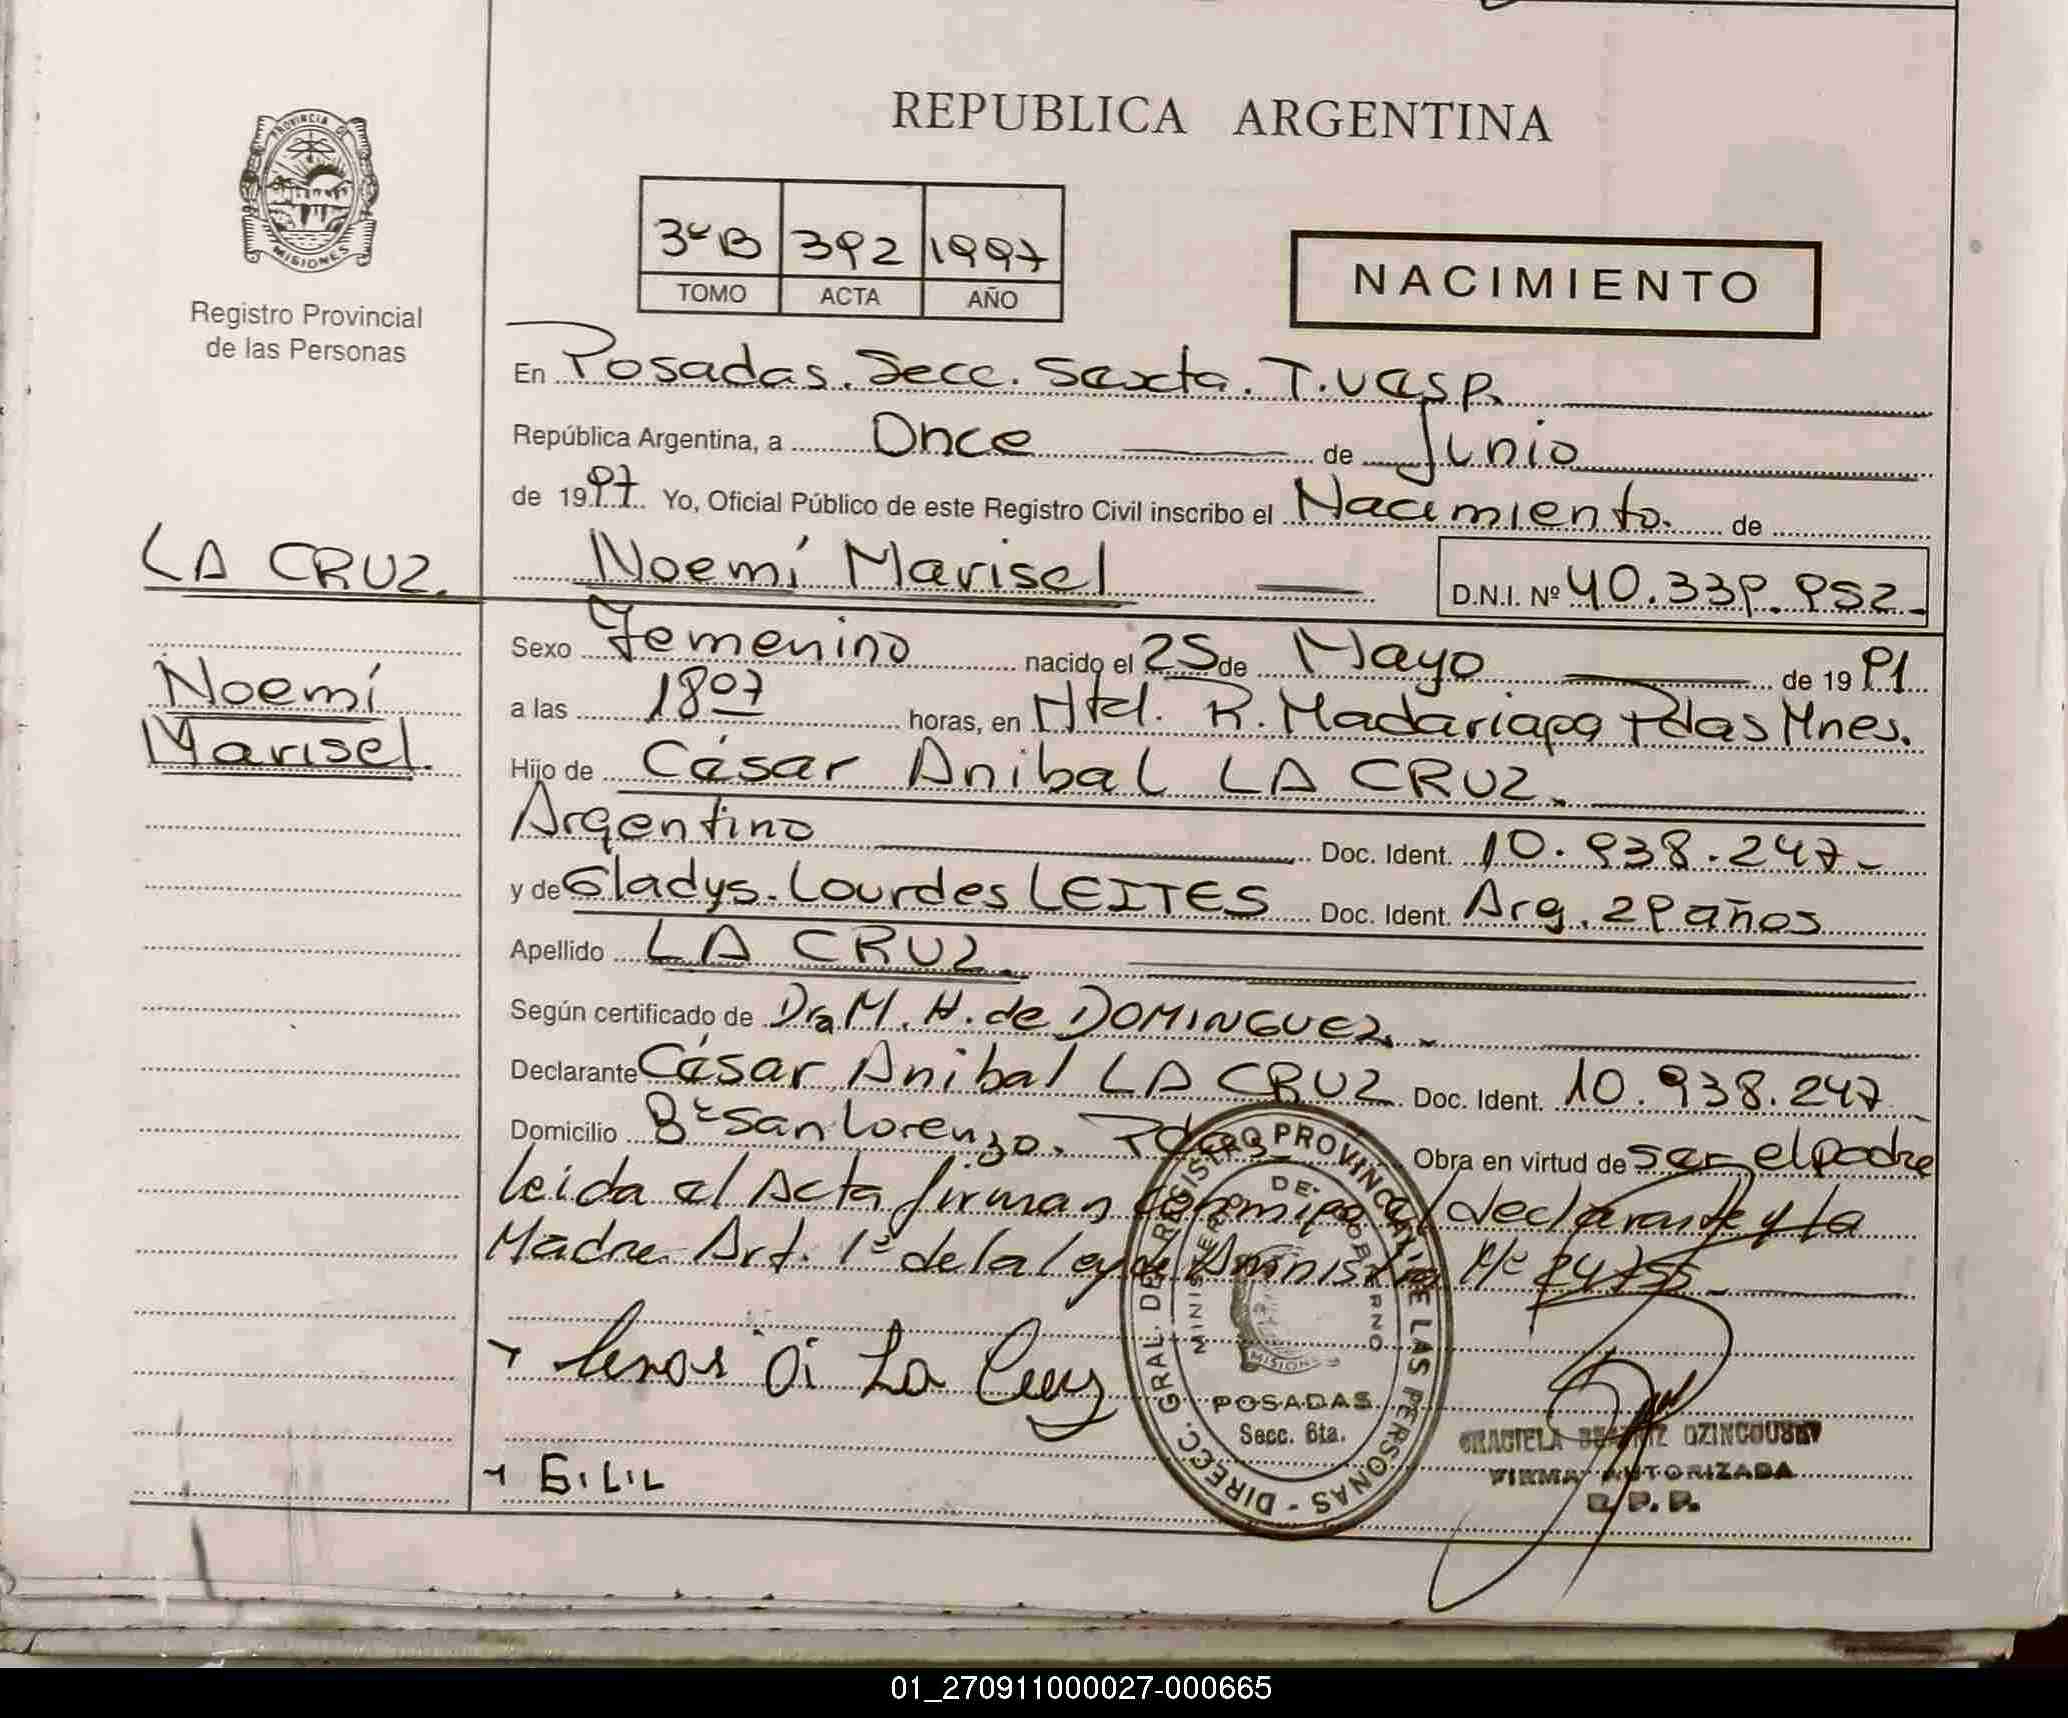 PROVINCIA DE
MISIONES
Registro Provincial
de las Personas
REPUBLICA ARGENTINA
3º B 392 1997
TOMO ACTA AÑO
NACIMIENTO
En Posadas. Secc. Sexta. T.
República Argentina, a Once de Junio
de 1997. Yo, Oficial Público de este Registro Civil inscribo el Nacimiento. de
LA CRUZ.
Noemí Marisel D.N.I. Nº 40.339.952-
Noemí
Marisel.
Sexo Femenino nacido el 25 de Mayo de 1991
a las 18 07 horas, en Htal. R. Madariaga Pdas Mnes.
Hijo de César Anibal LA CRUZ.
Argentino Doc. Ident. 10.938.247-
y de Gladys. Lourdes LEITES Doc. Ident. Arg. 29 años
Apellido LA CRUZ.
Según certificado de Dra M. H. de DOMINGUEZ.
Declarante César Anibal LA CRUZ Doc. Ident. 10.938.247
Domicilio Bº San Lorenzo. Pdas Obra en virtud de ser el padre
leida el Acta firman conmigo el declarante y la
Madre Art. 1º de la ley de Aministia Nº 24755
La Cruz
G.L.L
DIRECC. GRAL. DEL REGISTRO PROVINCIAL DE LAS PERSONAS -
MINISTERIO DE GOBIERNO
MISIONES
POSADAS
Secc. 6ta.
GRACIELA BEATRIZ OZINCOUSKY
FIRMA AUTORIZADA
R. P. P.
01_270911000027-000665